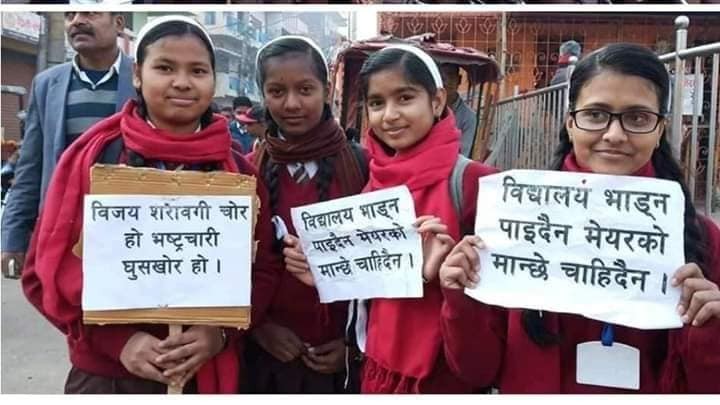 विजय शरावगी चोर
हो भष्ट्रचारी
घुसखोर हो ।
विद्यालय भाड्न
पाइदैन मेयरको
मान्छे चाहिदैन ।
विद्यालयं भाड्न
पाइदैन मेयरको
मान्छे चाहिदैन ।